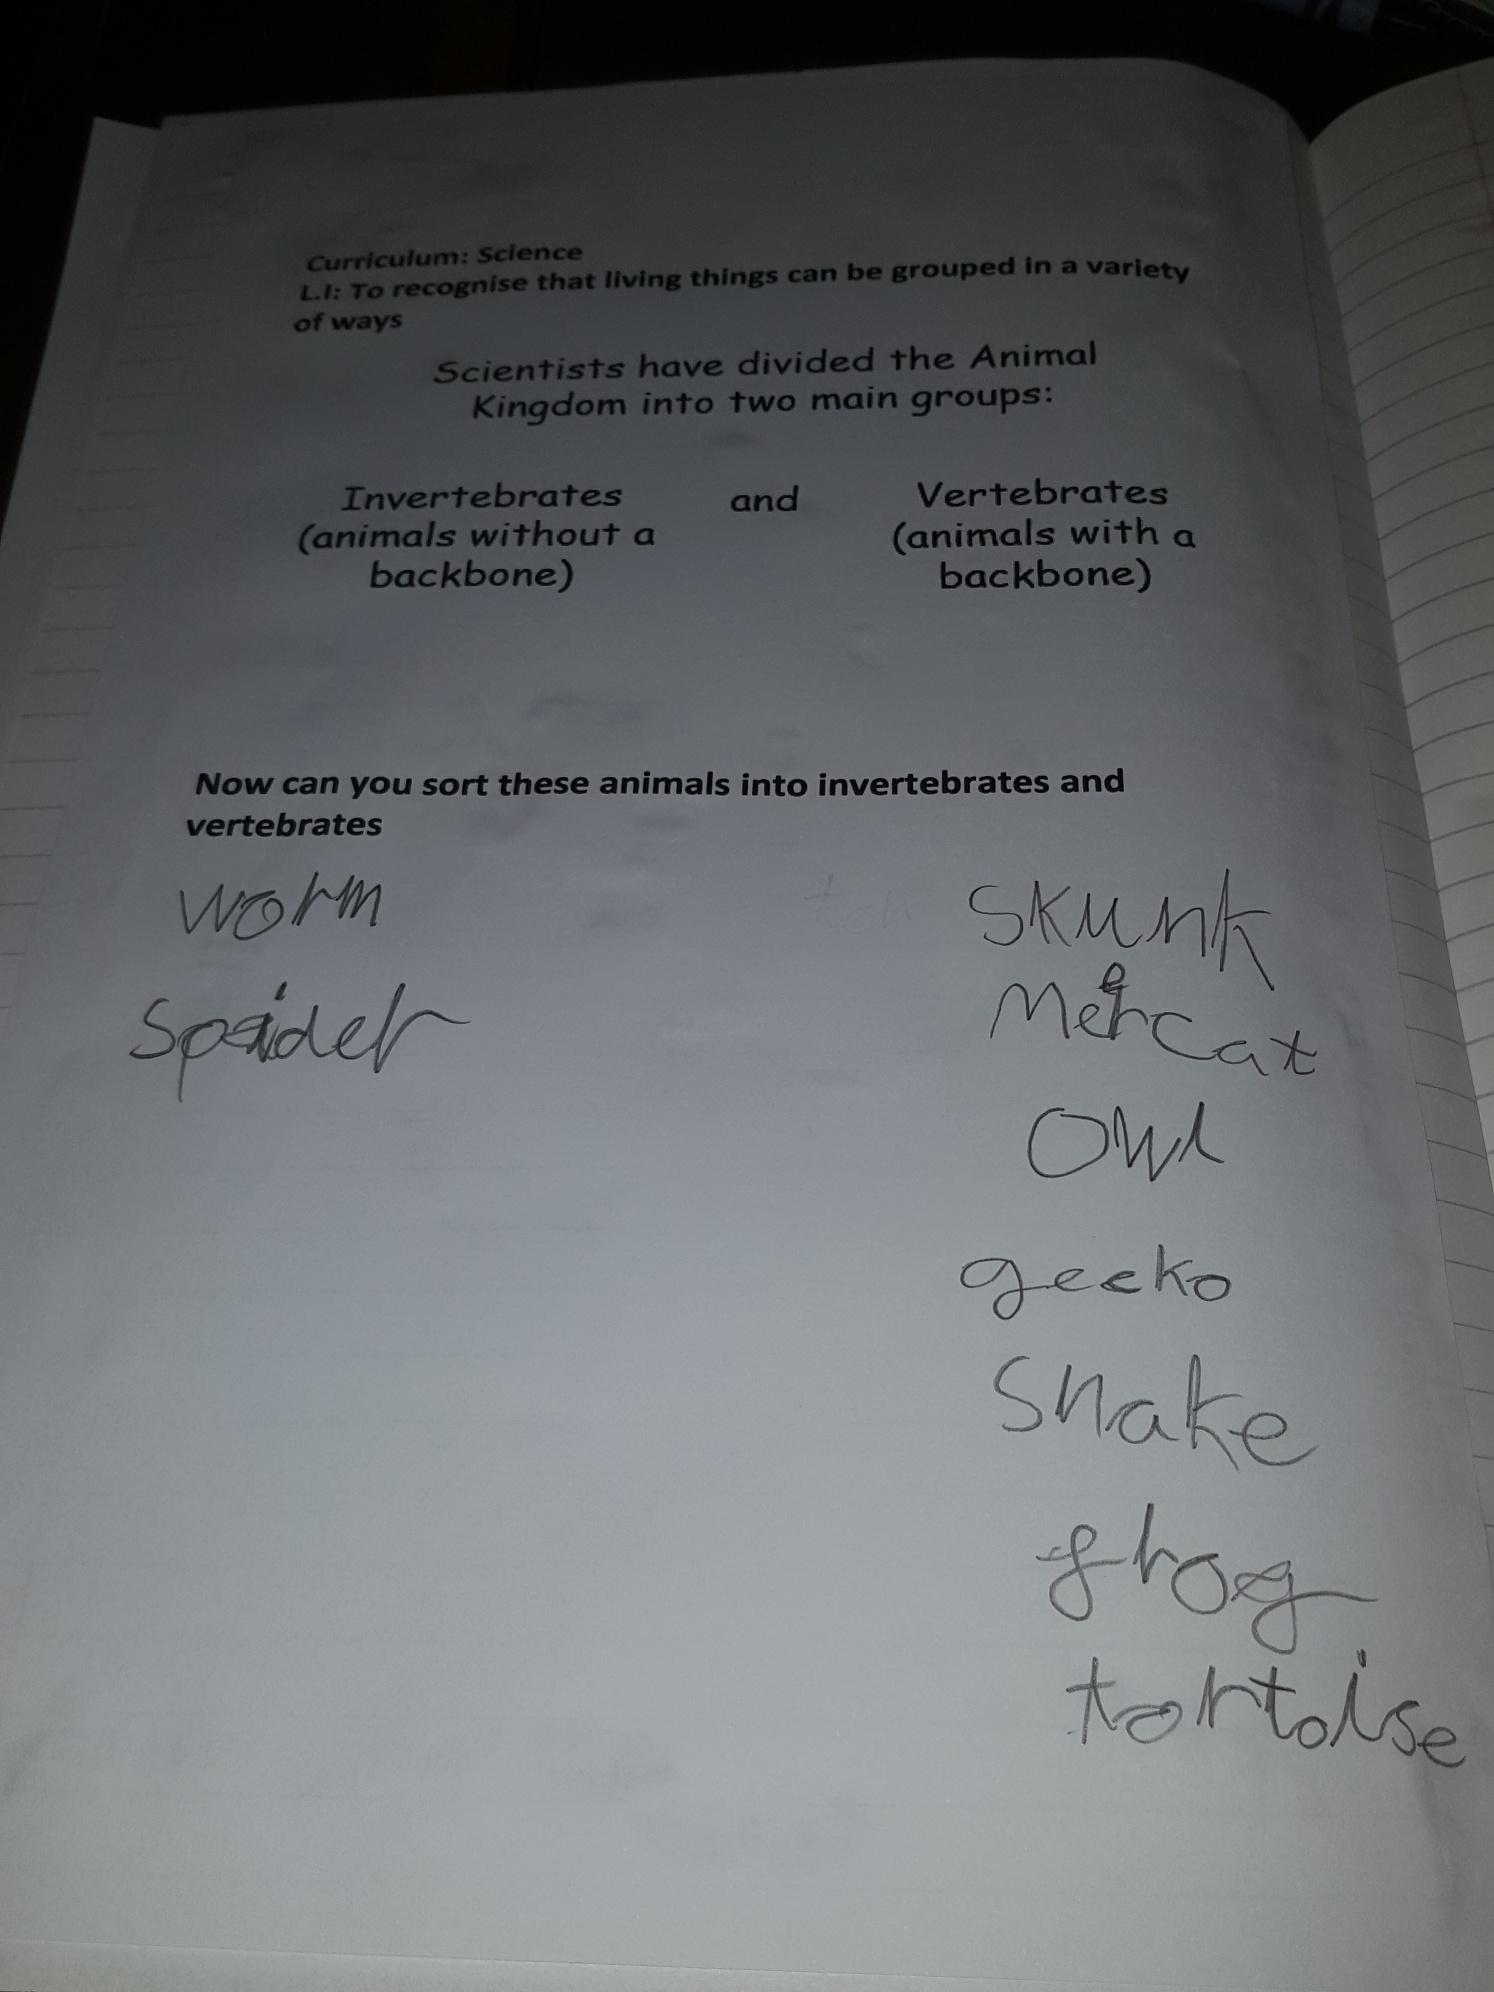 Curriculum: Science
L.I: To recognise that living things can be grouped in a variety
of ways
Scientists have divided the Animal
Kingdom into two main groups:
Invertebrates
(animals without a
backbone)
and
Vertebrates
(animals with a
backbone)
Now can you sort these animals into invertebrates and
vertebrates
worm
Spider
Skunk
Meercat
Owl
gecko
Snake
frog
tortoise